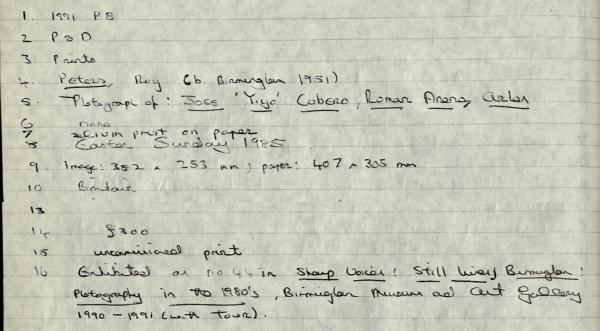 1. 1991 PS
2 P&D
3 Prints
4. Peters, Roy (b. Birmingham 1951)
5. Photograph of: Jose 'Yiyo' Cubero, Roman Arena, Arles
6 none
7 print on paper
8 Easter Sunday 1985
9. Image: 352 x 253 mm; paper: 407 x 305 mm
10 Britain
13
14 £300
15 uncommissioned print
16 Exhibited as no 44 in Sharp Voices: Still Lives; Birmingham Photography in the 1980's, Birmingham Museum and Art Gallery
1990-1991 (with tour).